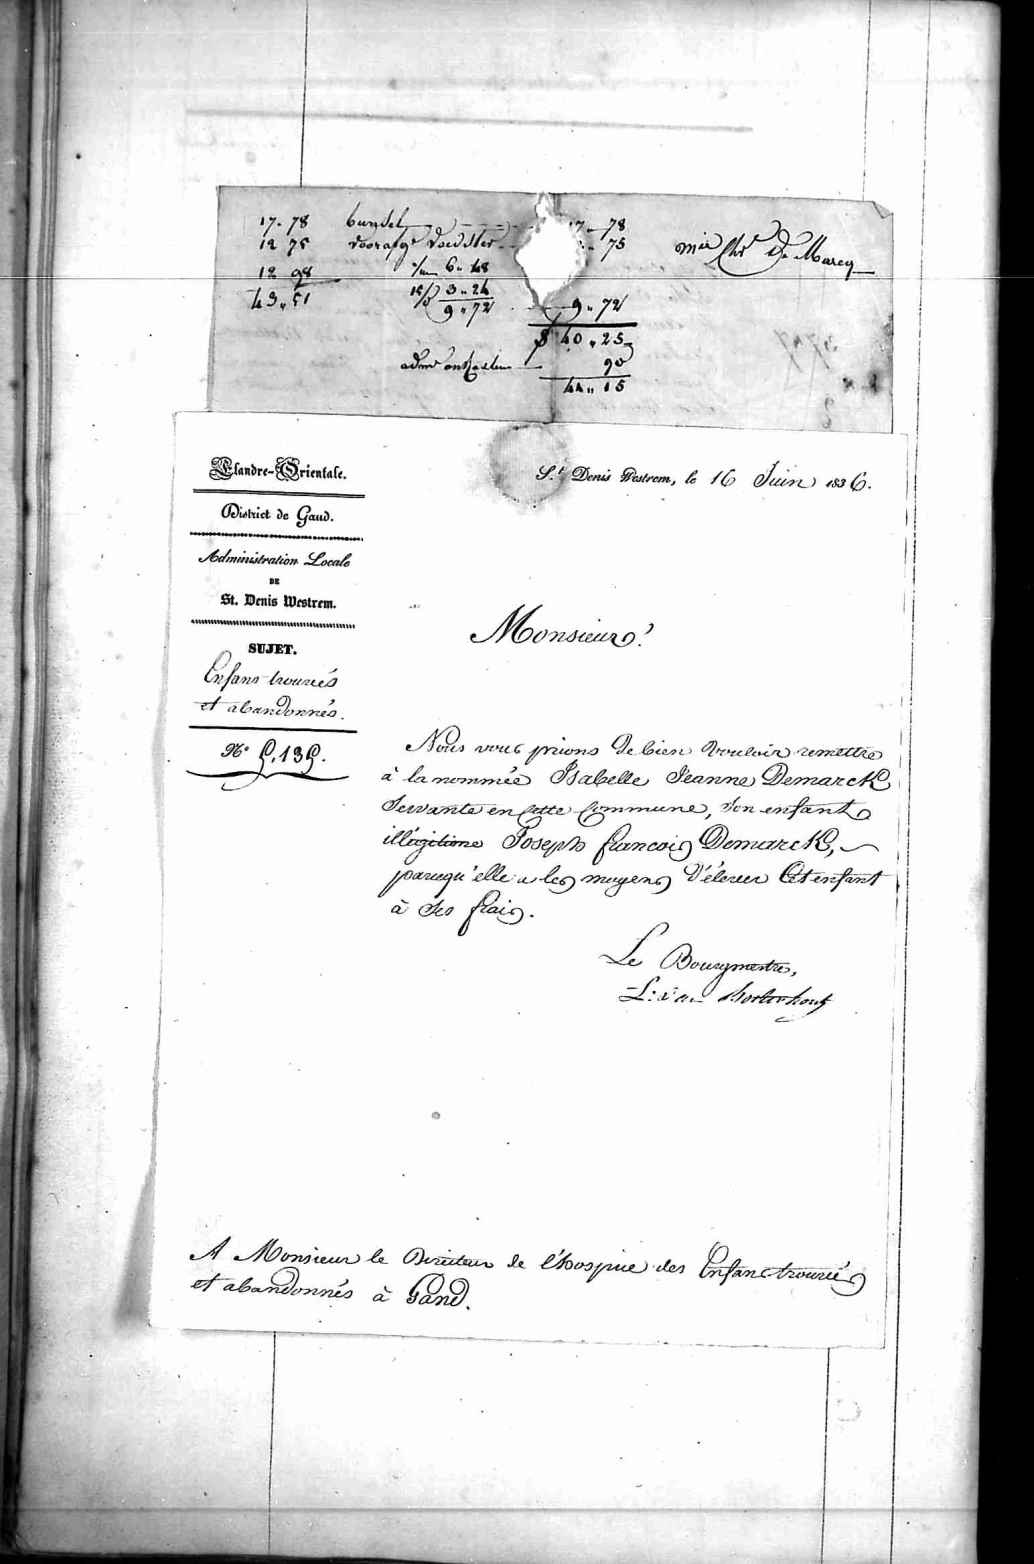 17. 78 bundel 7. 78
12 75 75
12 98 6. 48
43. 51 3. 24
9. 72 9. 72
40. 25
90
15
De Marcq
Flandre-Orientale.
District de Gand.
Administration Locale
DE
St. Denis Westrem.
SUJET.
Enfans trouvés
et abandonnés.
St. Denis Westrem, le 16 Juin 1836.
Monsieur!
Nous vous prions de bien vouloir remettre
à la nommée Isabelle Jeanne Demarck
servante en cette commune, son enfant
illégitime Joseph francois Demarck,
parcequ'elle a les moyens d'élever cet enfant
à ses frais.
Le Bourgmestre,
A Monsieur le Directeur de l'hospice des Enfans trouvés
et abandonnés à Gand.